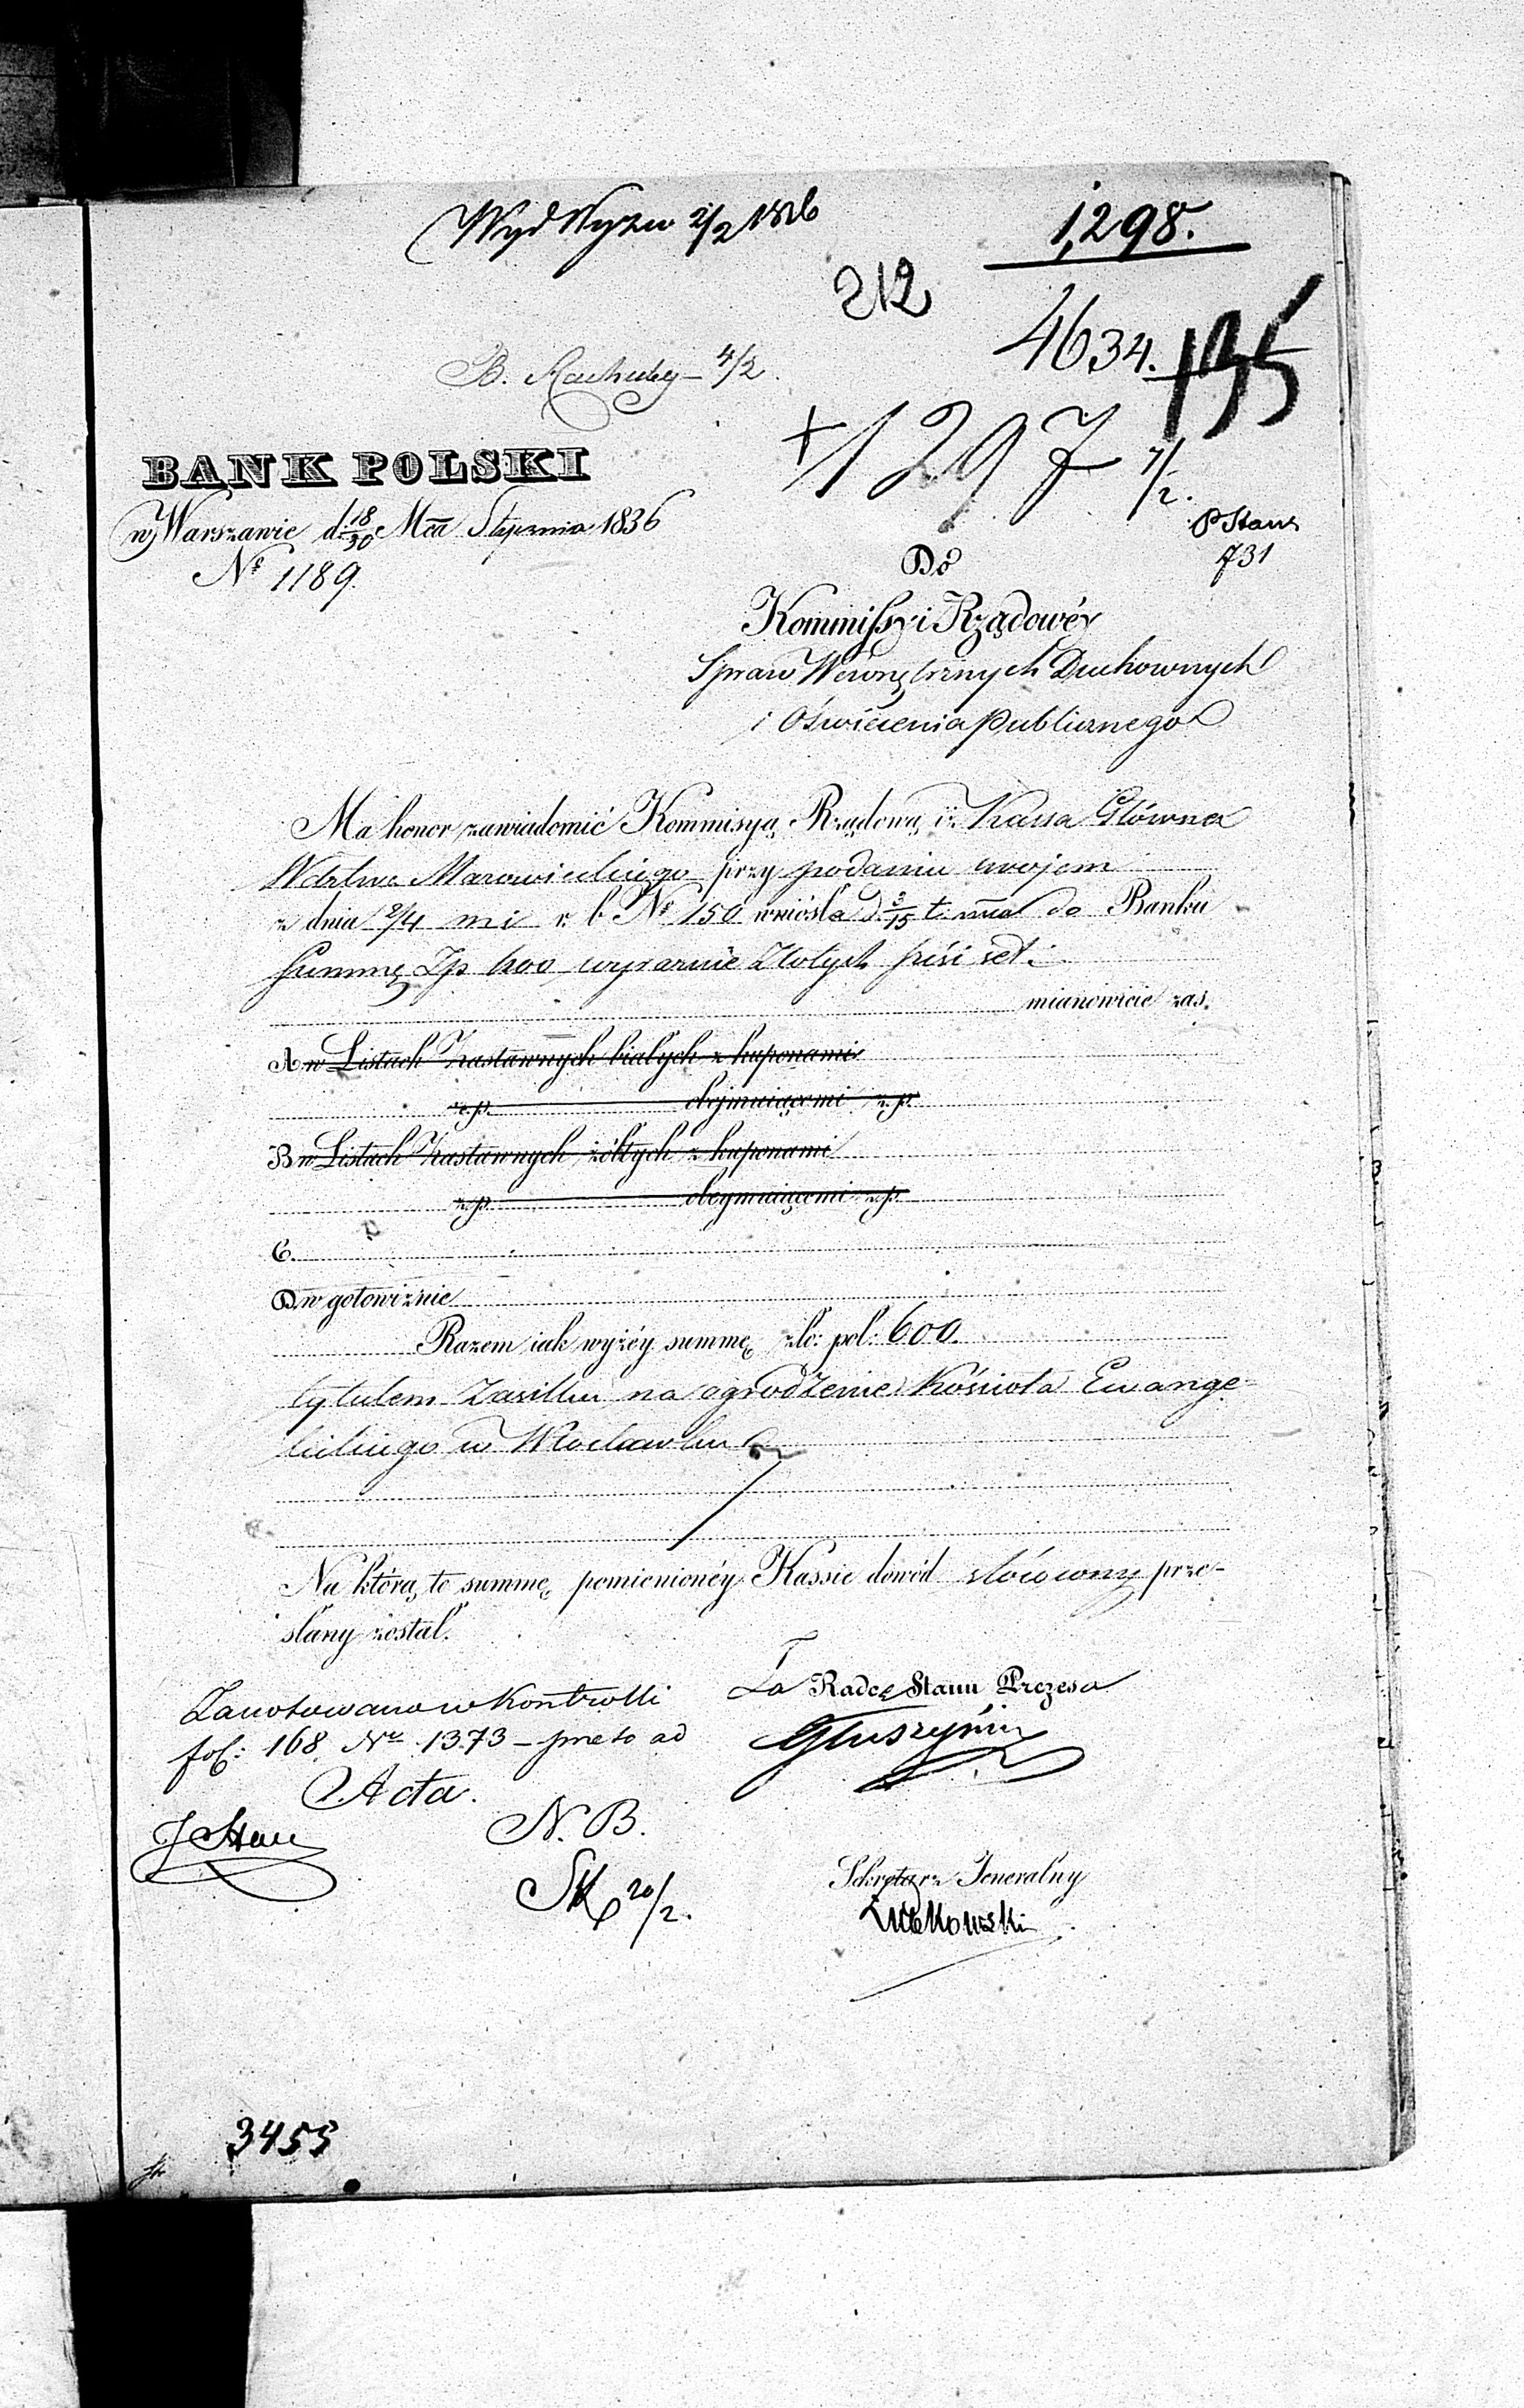 Wyd Wyzn 2/2 1836
1,298.
212
4634.
135
B. Rachuby – 4/2.
+ 1297 7/2.
BANK POLSKI
w Warszawie d. 18/30 Mca Stycznia 1836
Nº 1189.
731
Do
Kommissyi Rządowéy
Spraw Wewnętrznych Duchownych
i Oświecenia Publicznego
Ma honor zawiadomić Kommisyą Rządową iż Kassa Główna
Wdztwa Mazowieckiego przy podaniu swojem
z dnia 2/4 mi r. b Nº 150 wniósła d. 3/15 t. mca do Banku
Summę Zp 600 wyraznie Złotych sześć set:
mianowicie zas.
A w Listach Zastawnych białych z kuponami
z.p. obejmuiącemi z.p.
B w Listach Zastawnych żółtych z kuponami
z.p. obeymuiącemi z.p.
C.
D. w gotowiznie
Razem iak wyżéy summę zło: pol: 600.
tytulem Zasiłku na ogrodzenie Kościoła Ewange-
lickiego w Włocławku
Na którą to summę pomienionéy Kassie dowód stósowny prze-
słany został.
Za Radcę Stanu Prezesa
Zanotowano w Kontrolli
fol: 168 Nr 1373 – prze to ad
Acta.
N. B.
20/2.
Sekretarz Jeneralny
3455